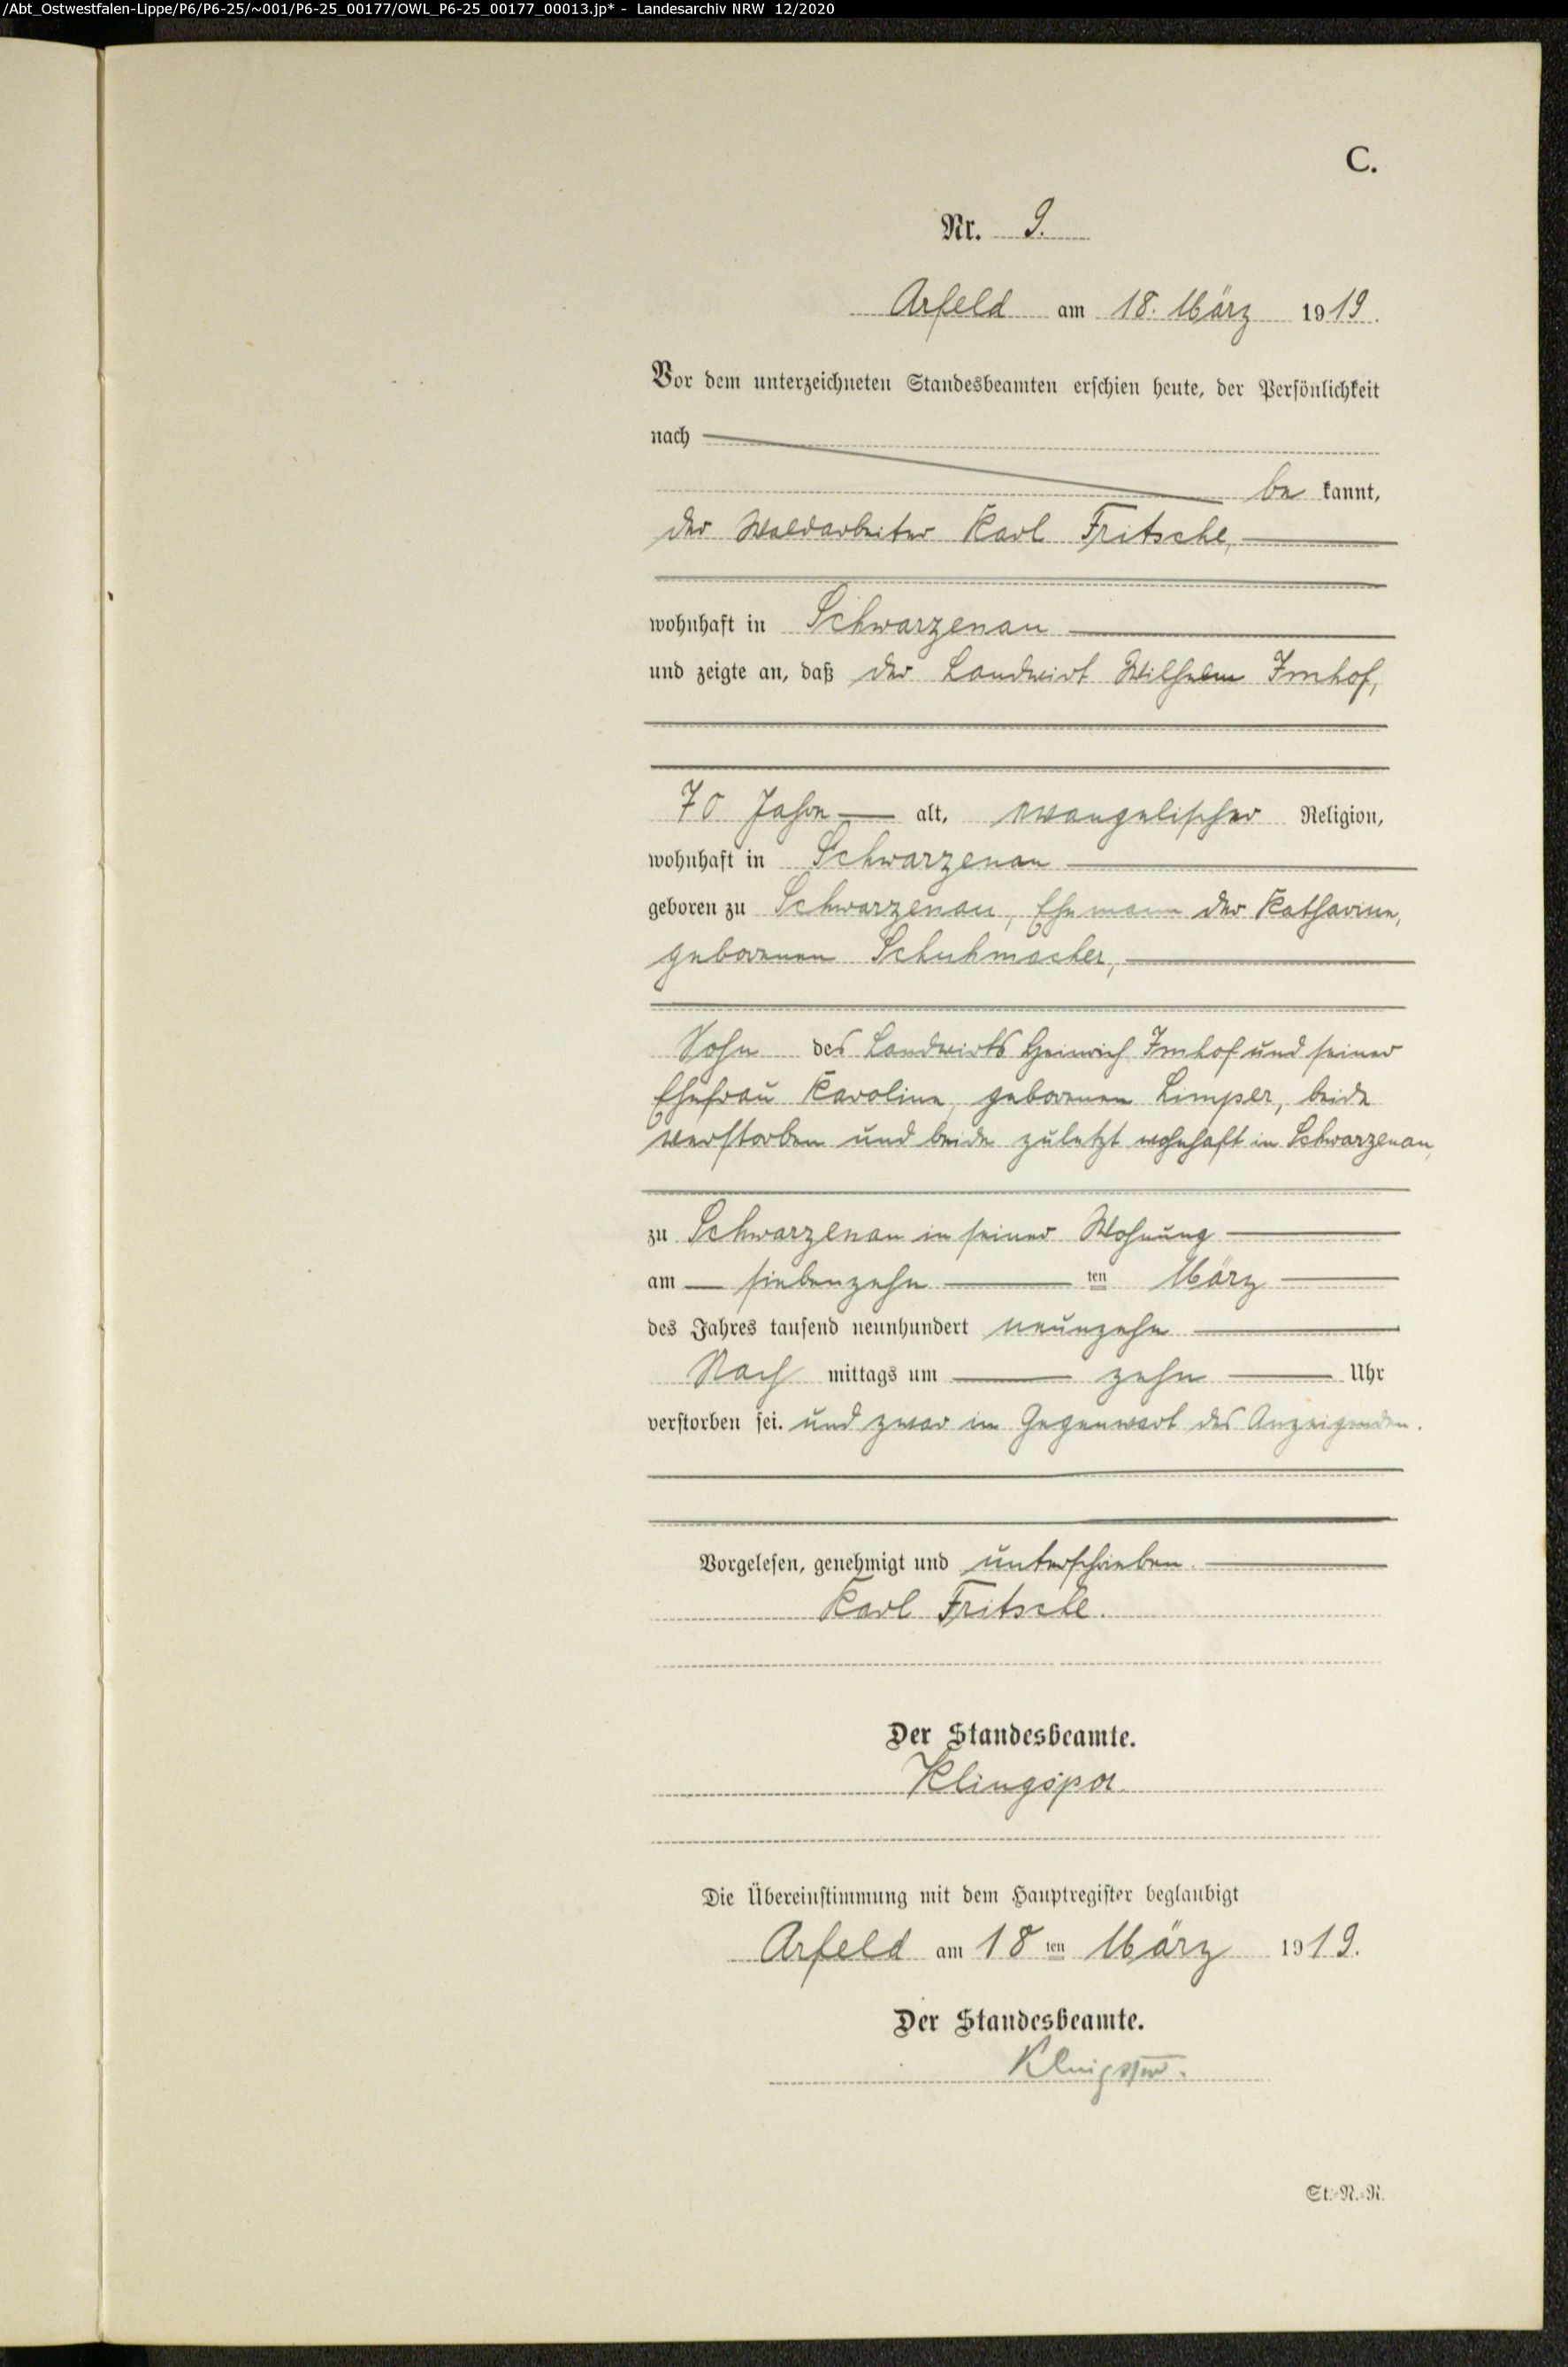 /Abt_Ostwestfalen-Lippe/P6/P6-25/~001/P6-25_00177/OWL_P6-25_00177_00013.jp* - Landesarchiv NRW 12/2020
C.
Nr. 9.
Arfeld am 18. März 1919.
Vor dem unterzeichneten Standesbeamten erschien heute, der Persönlichkeit
nach
be kannt,
der Waldarbeiter Karl Fritsche,
wohnhaft in Schwarzenau
und zeigte an, daß der Landwirt Wilhelm Imhof,
70 Jahre alt, evangelischer Religion,
wohnhaft in Schwarzenau
geboren zu Schwarzenau, Ehemann der Katharine,
geborenen Schuhmacher,
Sohn des Landwirts Heinrich Imhof und seiner
Ehefrau Karoline, geborenen Limper, beide
verstorben und beide zuletzt wohnhaft in Schwarzenau,
zu Schwarzenau in seiner Wohnung
am siebenzehn ten März
des Jahres tausend neunhundert neunzehn
Nach mittags um zehn Uhr
verstorben sei. und zwar in Gegenwart des Anzeigenden.
Vorgelesen, genehmigt und unterschrieben.
Karl Fritsche.
Der Standesbeamte.
Klingspor
Die Übereinstimmung mit dem Hauptregister beglaubigt
Arfeld am 18 ten März 1919.
Der Standesbeamte.
Klingspor.
St.-R.-R.